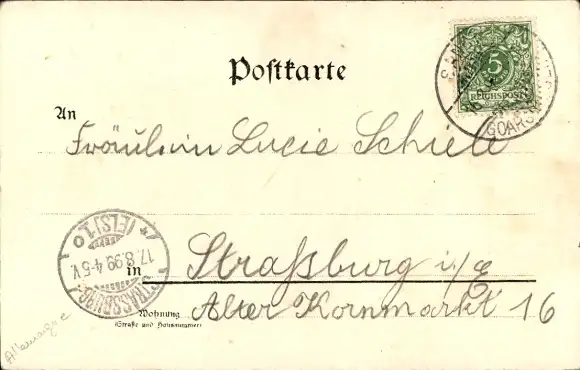 Postkarte
5
REICHSPOST
SANKT
GOARSH
An
Fräulein Lucie Schiele
in Straßburg i/E
Wohnung Alter Kornmarkt 16
(Straße und Hausnummer)
STRASSBURG
17.8.99 4-5V.
(ELS) 1
Allemagne